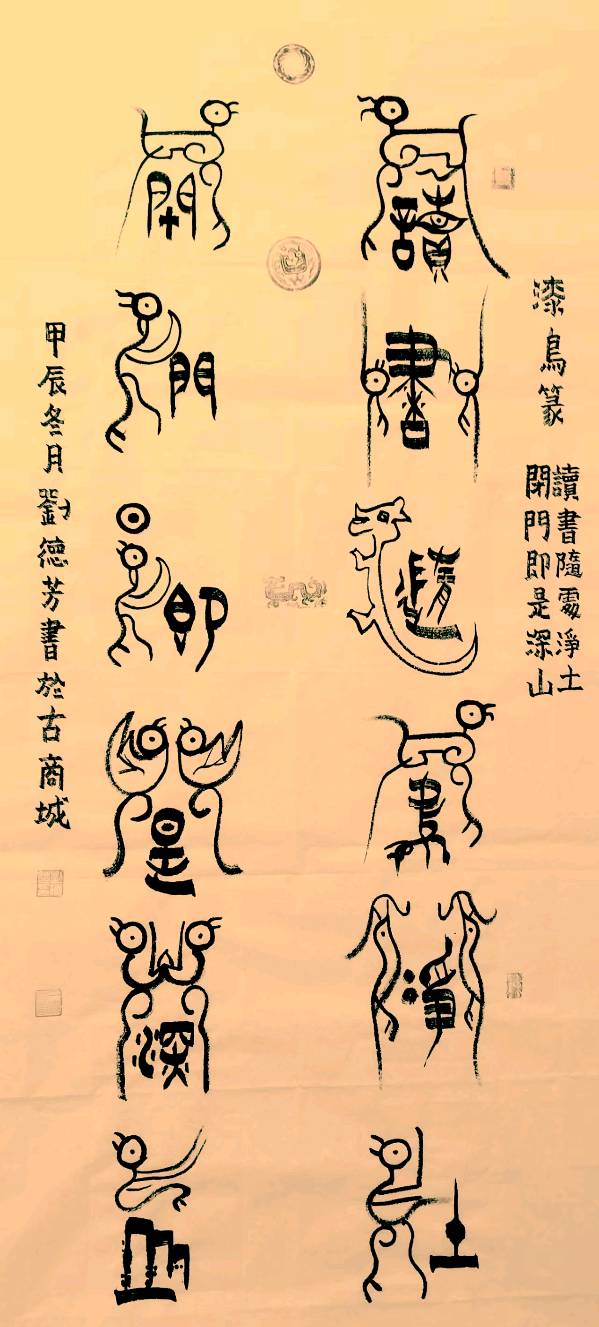 漆鳥篆
讀書隨處淨土
閉門即是深山
讀書隨處淨土
閉門即是深山
甲辰冬月劉德芳書於古商城